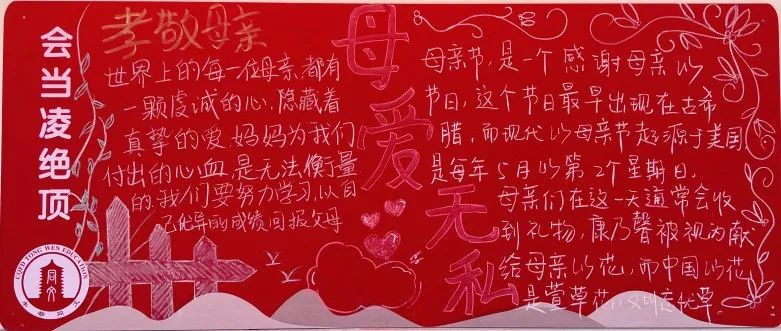 会当凌绝顶
孝敬母亲
世界上的每一位母亲,都有
一颗虔诚的心,隐藏着
真挚的爱,妈妈为我们
付出的心血,是无法衡量
的,我们要努力学习,以自
己优异的成绩回报父母
母爱无私
母亲节,是一个感谢母亲的
节日,这个节日最早出现在古希
腊,而现代的母亲节起源于美国
是每年5月的第2个星期日.
母亲们在这一天通常会收
到礼物,康乃馨被视为献
给母亲的花,而中国的花
是萱草花,又叫忘忧草.
TONG WEN EDUCATION
同文